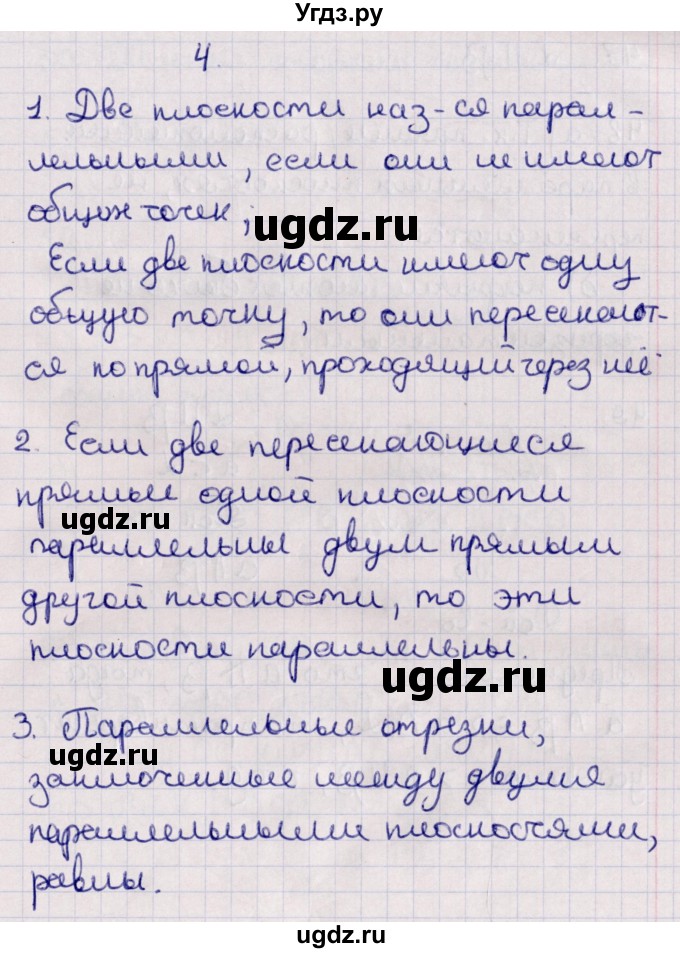 Угдз.ру
4.
1. Две плоскости наз-ся парал-
лельными, если они не имеют
общих точек;
ugdz.ru
Если две плоскости имеют одну
общую точку, то они пересекают-
ся по прямой, проходящий через неё
2. Если две пересекающиеся
прямые одной плоскости
ugdz.ru
параллельны двум прямым
другой плоскости, то эти
плоскости параллельны.
ugdz.ru
3. Параллельные отрезки,
ugdz.ru
заключенные между двумя
параллельными плоскостями,
равны.
ugdz.ru